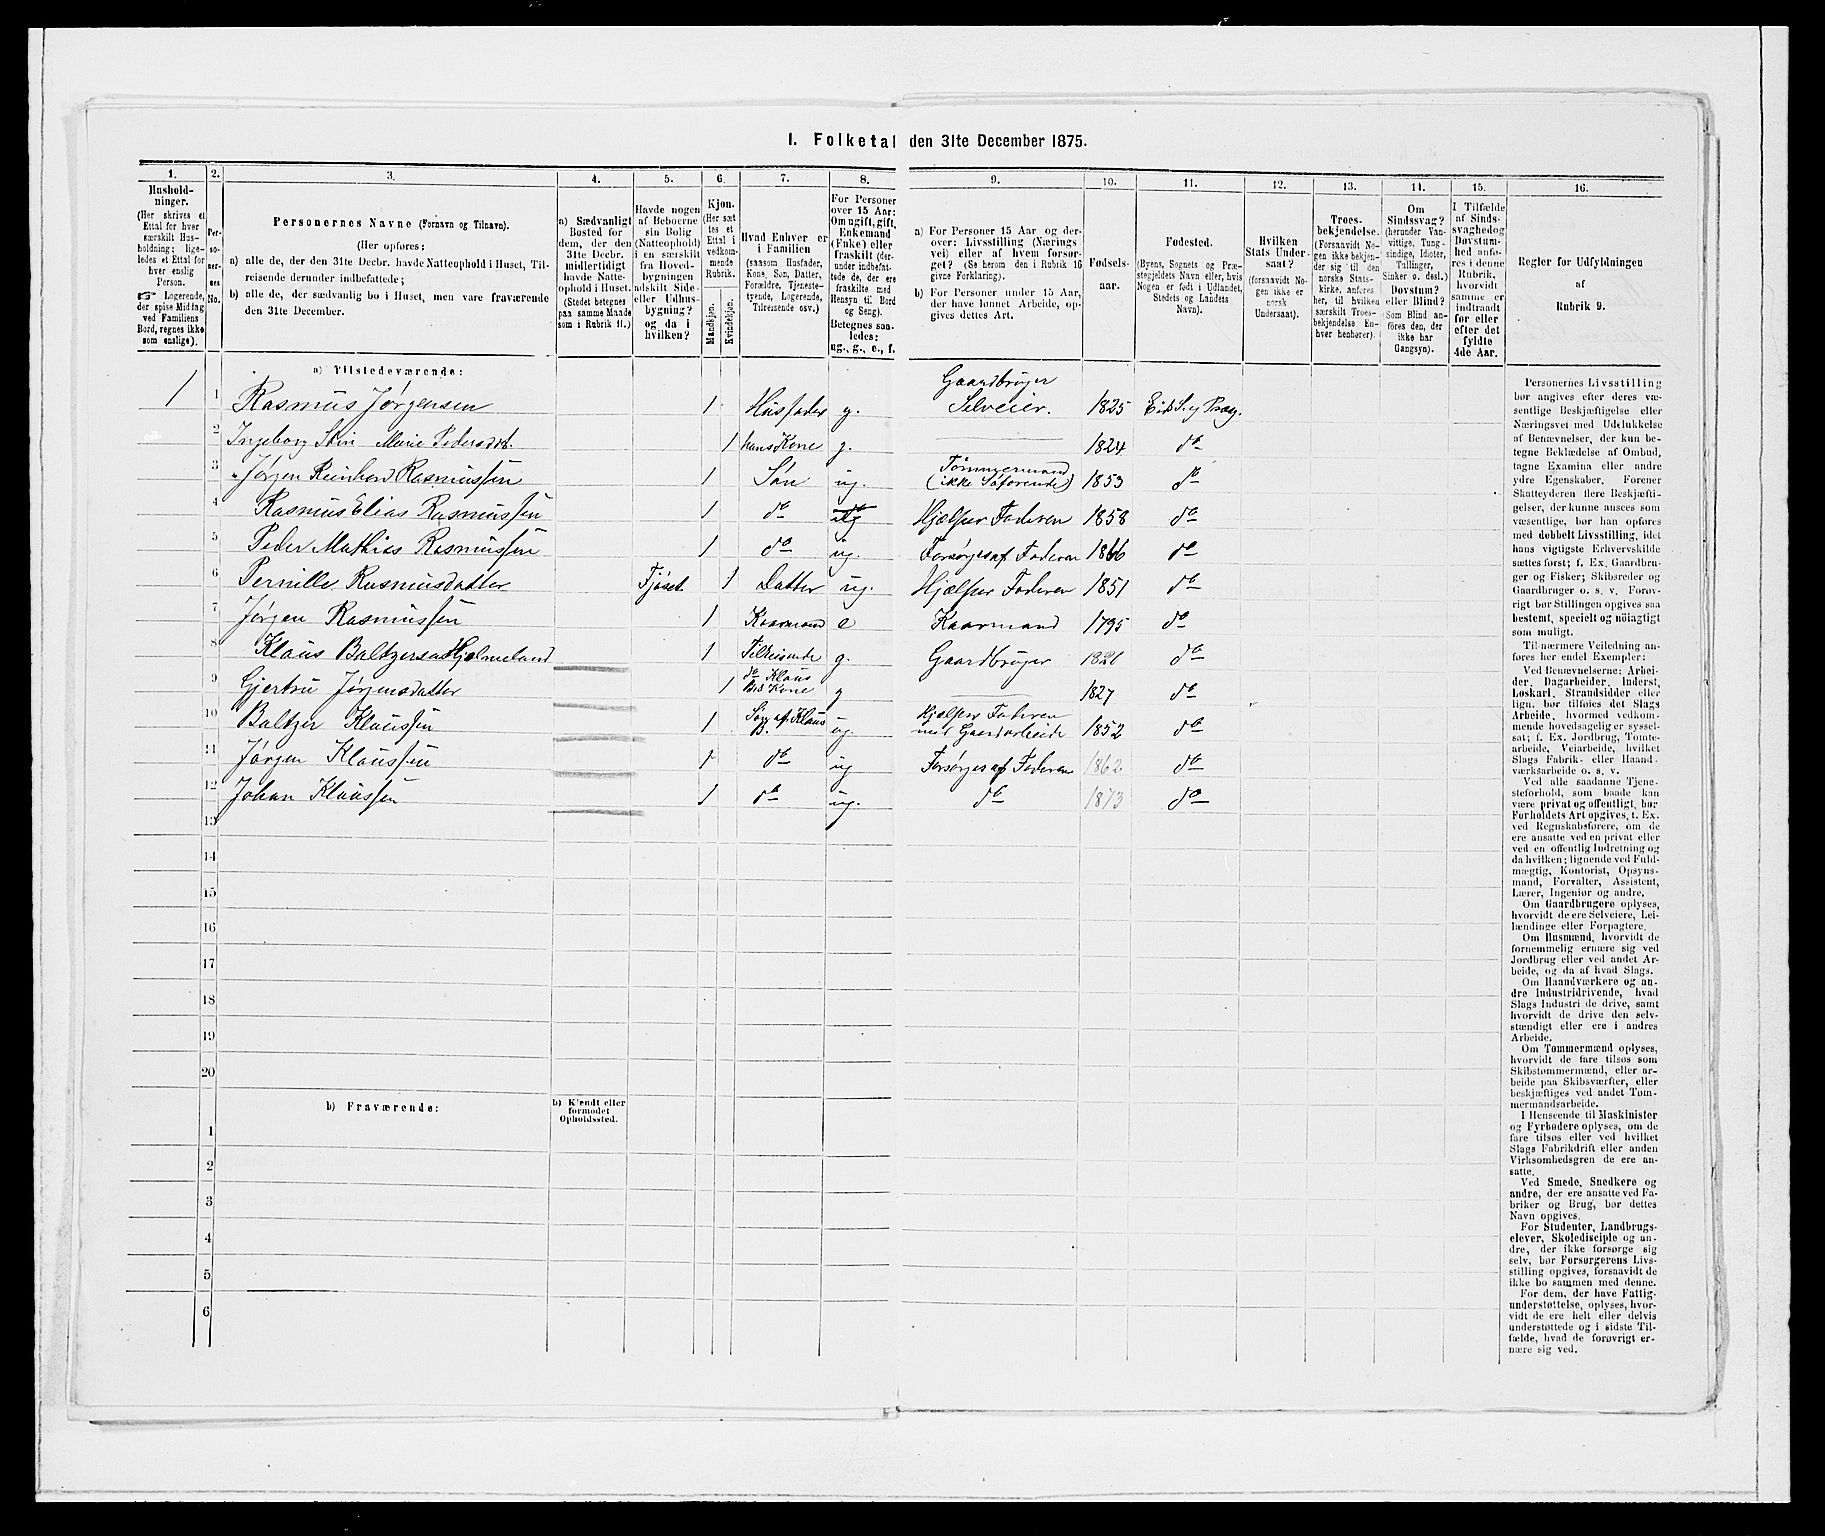 I. Folketal den 31te December 1875.
1. 2. 3. 4. 5. 6. 7. 8. 9. 10. 11. 12. 13. 14. 15. 16.
Hushold-
ninger.
(Her skrives et
Ettal for hver
særskilt Hus-
holdning; lige-
ledes et Ettal for
hver enslig
Person.
☞ Logerende,
der spise Middag
ved Familiens
Bord, regnes ikke
som enslige).
Per-
so-
ner-
nes
No.
Personernes Navne (Fornavn og Tilnavn).
(Her opføres:
a) alle de, der den 31te Decbr. havde Natteophold i Huset, Til-
reisende derunder indbefattede;
b) alle de, der sædvanlig bo i Huset, men vare fraværende
den 31te December.
a) Sædvanligt
Bosted for
dem, der den
31te Decbr.
midlertidigt
havde Natte-
ophold i Huset.
(Stedet betegnes
paa samme Maade
som i Rubrik 11.)
Havde nogen
af Beboerne
sin Bolig
(Natteophold)
i en særskilt
fra Hoved-
bygningen
adskilt Side-
eller Udhus-
bygning?
og da i
hvilken?
Kjøn.
(Her sæt
tes et
Ettal i
vedkom-
mende
Rubrik.
Mandkjøn.
Kvindekjøn.
Hvad Enhver er
i Familien
(saasom Husfader,
Kone, Søn, Datter,
Forældre, Tjeneste-
tyende, Logerende,
Tilreisende osv.)
For Personer
over 15 Aar:
Om ugift, gift,
Enkemand
(Enke) eller
fraskilt (der-
under indbefat-
tede de, der ere
fraskilte med
Hensyn til Bord
og Seng).
Betegnes saa-
ledes:
ug., g., e., f.
a) For Personer 15 Aar og der-
over: Livsstilling (Nærings
vei) eller af hvem forsør-
get? (Se herom den i Rubrik 16
givne Forklaring).
b) For Personer under 15 Aar,
der have lønnet Arbeide, op-
gives dettes Art.
Fødsels-
aar.
Fødested.
(Byens, Sognets og Præ-
stegjeldets Navn eller, hvis
Nogen er født i Udlandet,
Stedets og Landets
Navn).
Hvilken
Stats Under-
saat?
(forsaavidt No-
gen ikke er
norsk
Undersaat).
Troes-
bekjendelse.
(Forsaavidt No-
gen ikke bekjen-
der sig til den
norske Stats-
kirke, anføres
her, til hvilken
særskilt Troes-
bekjendelse En-
hver henhører).
Om
Sindssvag?
(herunder Van-
vittige, Tung-
sindige, Idioter,
Tullinger,
Sinker o. desl.)
Døvstum?
eller Blind?
(Som Blind an-
føres den, der
ikke har
Gangsyn).
I Tilfælde
af Sinds-
svaghed og
Døvstum-
hed anfø-
res i denne
Rubrik,
hvorvidt
samme er
indtraadt
før eller
efter det
fyldte
4de Aar.
Regler for Udfyldningen
af
Rubrik 9.
a) Tilstedeværende:
1 1 Rasmus Jørgensen 1 Husfader g. Gaardbruger Selveier. 1825 Eid S. og Præg.
2 Ingeborg Marie Pedersdtr. 1 hans Kone g. 1824 do
3 Jørgen Reinhard Rasmussen 1 Søn ug. Tømmermand (ikke Søfarende) 1853 do
4 Rasmus Elias Rasmussen 1 do Hjælper Faderen 1858 do
5 Peder Mathias Rasmussen 1 do ug. Forsørges af Faderen 1866 do
6 Pernille Rasmusdatter Fjøset 1 Datter ug. Hjælper Faderen 1851 do
7 Jørgen Rasmussen 1 Kaarmand e Kaarmand 1795 do
8 Klaus Baltzersen Hjelmeland 1 Tilreisende g. Gaardbruger 1826 do
9 Gjertru Jørgensdatter 1 do Klaus Bs Kone g 1827 do
10 Baltzer Klaussen 1 Søn af Klaus B. ug. Hjælper Faderen med Gaardarbeide 1852 do
11 Jørgen Klaussen 1 do ug Forsørges af Faderen 1862 do
12 Johan Klaussen 1 do ug. do 1873 do
13
14
15
16
17
18
19
20
b) Fraværende:
b) Kjendt eller
formodet
Opholdssted.
1
2
3
4
5
6
Personernes Livsstilling
bør angives efter deres væ-
sentlige Beskjæftigelse eller
Næringsvei med Udelukkelse
af Benævnelser, der kun be-
tegne Beklædelse af Ombud,
tagne Examina eller andre
ydre Egenskaber. Forener
Skatteyderen flere Beskjæfti-
gelser, der kunne ansees som
væsentlige, bør han opføres
med dobbelt Livsstilling, idet
hans vigtigste Erhvervskilde
sættes først; f. Ex. Gaardbru-
ger og Fisker; Skibsreder og
Gaardbruger o. s. v. Forøv-
rigt bør Stillingen opgives saa
bestemt, specielt og nöiagtigt
som muligt.
Til nærmere Veiledning an-
føres her endel Exempler:
Ved Benævnelserne: Arbei-
der, Dagarbeider, Inderst,
Løskarl, Strandsidder eller
lign. bør tilføies det Slags
Arbeide, hvormed vedkom-
mende hovedsagelig er syssel-
sat; f. Ex. Jordbrug, Tomte-
arbeide, Veiarbeide, hvilket
Slags Fabrik- eller Haand-
værksarbeide o. s. v.
Ved alle saadanne Tjene-
steforhold, som baade kan
være privat og offentligt, bør
Forholdets Art opgives, t. Ex.
ved Regnskabsførere, om de
ere ansatte ved en privat eller
ved en offentlig Indretning og
da hvilken; lignende ved Fuld-
mægtig, Kontorist, Opsyns-
mand, Forvalter, Assistent,
Lærer, Ingeniør og andre.
Om Gaardbrugere oplyses,
hvorvidt de ere Selveiere, Lei-
lændinge eller Forpagtere.
Om Husmænd, hvorvidt de
fornemmelig ernære sig ved
Jordbrug eller ved andet Ar-
beide, og da af hvad Slags.
Om Haandværkere og an-
dre Industridrivende, hvad
Slags Industri de drive, samt
hvorvidt de drive den selv-
stændigt eller ere i andres
Arbeide.
Om Tømmermænd oplyses,
hvorvidt de fare tilsøs som
Skibstømmermænd, eller ar-
beide paa Skibsværfter, eller
beskjæftiges ved andet Tøm-
mermandsarbeide.
I Henseende til Maskinister
og Fyrbødere oplyses, om de
fare tilsøs eller ved hvilket
Slags Fabrikdrift eller anden
Virksomhedsgren de ere an-
satte.
Ved Smede, Snedkere og
andre, der ere ansatte ved Fa-
briker og Brug, bør dettes
Navn opgives.
For Studenter, Landbrugs-
elever, Skoledisciple og an-
dre, der ikke forsørge sig
selv, bør Forsørgerens Livs-
stilling opgives, forsaavidt de
ikke bo sammen med denne.
For dem, der have Fattig-
understøttelse, oplyses, hvor-
vidt de ere helt eller delvis
understøttede og i sidste Til-
fælde, hvad de forøvrigt er-
nære sig ved.